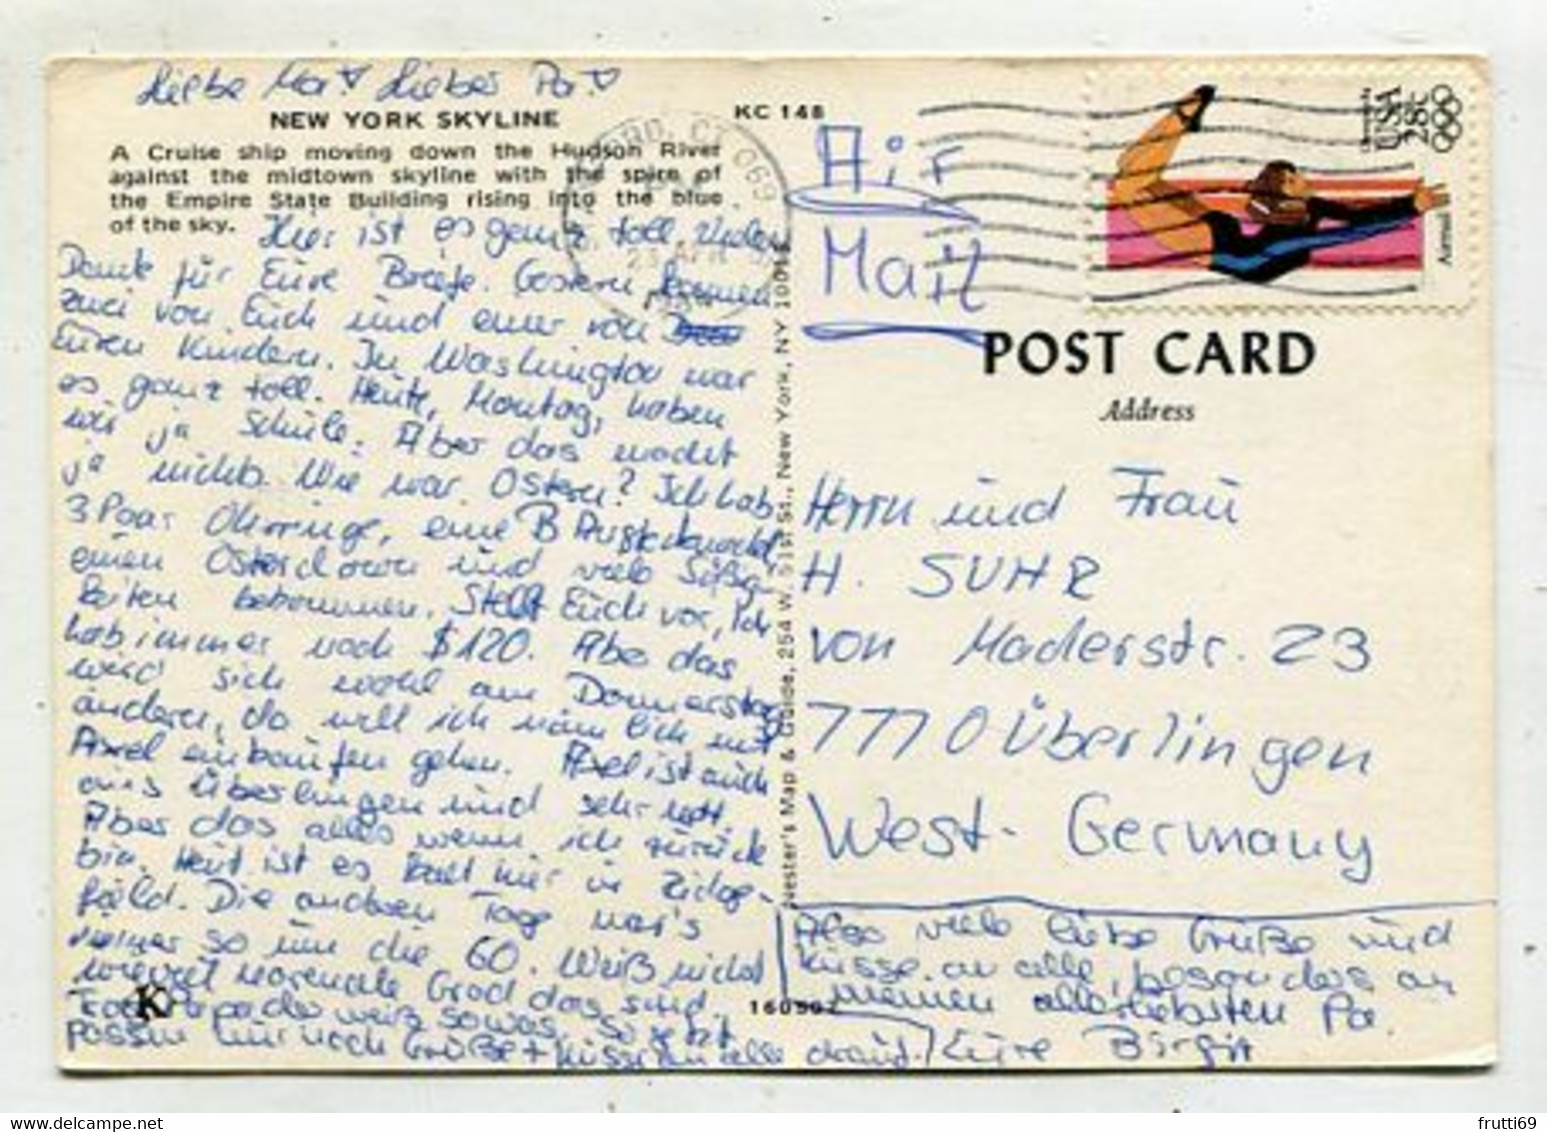 Liebe Ma ♡ Lieber Pa ♡
NEW YORK SKYLINE
KC 148
A Cruise ship moving down the Hudson River
against the midtown skyline with the spire of
the Empire State Building rising into the blue
of the sky.
Hier ist es ganz toll. Vielen
Dank für Eure Briefe. Gestern kamen
zwei von Euch und einer von
Euren Kindern. In Washington war
es ganz toll. Heute, Montag, haben
wir ja Schule. Aber das macht
ja nichts. Wie war Ostern? Ich hab
3 Paar Ohrringe, eine B
einen Osterclown und viele Süßig-
keiten bekommen. Stellt Euch vor, ich
hab immer noch $120. Aber das
wird sich wohl am Donnerstag
ändern, da will ich nämlich mit
Axel einkaufen gehen. Axel ist auch
aus Überlingen und sehr nett.
Aber das alles wenn ich zurück
bin. Heut ist es kalt hier in Ridge-
field. Die anderen Tage war's
immer so um die 60. Weiß nicht
wieviel normale Grad das sind.
Papa der weiß sowas. So jetzt
passen nur noch Grüße + Küsse an alle drauf. / Eure Birgit
Also viele liebe Grüße und
Küsse an alle, besonders an
meinen allerliebsten Pa.
K
160502
Nester's Map & Guide, 254 W. 31st St., New York, NY 10012
CT 069
23 APR
Air
Mail
USA 28c
Airmail
POST CARD
Address
Herrn und Frau
H. SUHR
von Maderstr. 23
7770 Überlingen
West-Germany
frutti69